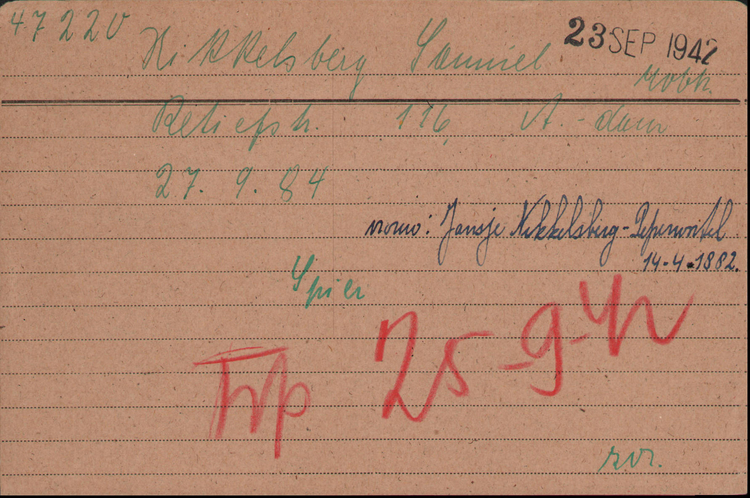 47220
Nikkelsberg Samuel 23 SEP 1942
Retiefstr. 116, A-dam
27. 9. 84
vrouw: Jansje Nikkelsberg-Peperwortel
14-4-1882.
Spier
Trp 25-9-42